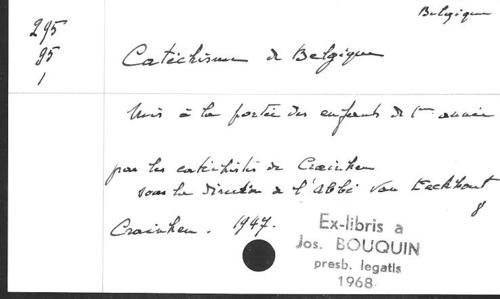 Belgique
295
95
1
Catéchisme de Belgique
Mis à la portée des enfants de 1ère année
par les catéchistes de Crainhem
sous la direction de l'Abbé Van Eeckhout
8
Crainhem. 1947.
Ex-libris a
Jos. BOUQUIN
presb. legatis
1968